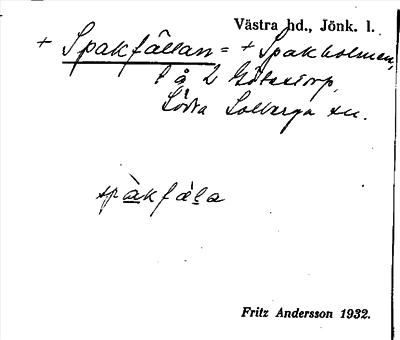 Västra hd., Jönk. l.
+ Spakfällan = + Spakholmen,
l å 2 Götastorp,
Södra Solberga sn.
spàkfäla
Fritz Andersson 1932.